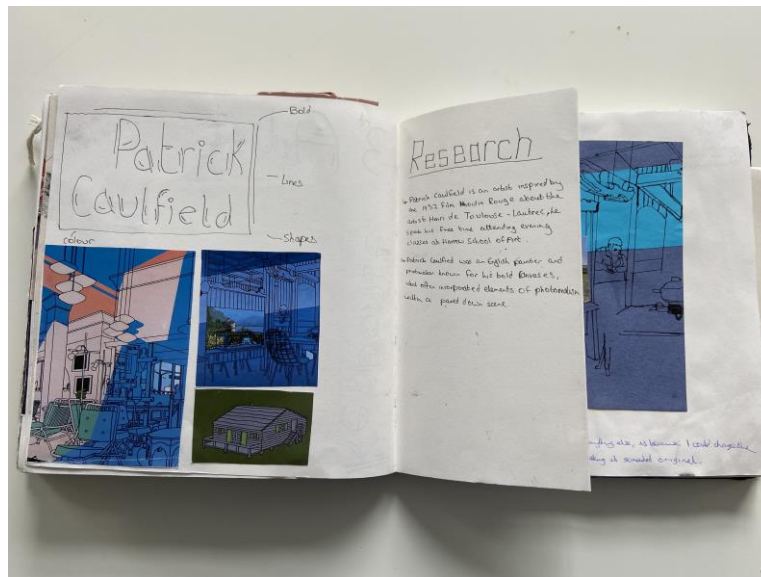 Bold
Patrick
Caulfield
Lines
colour
Shapes
Research
Patrick Caulfield is an artist inspired by
the 1952 film Moulin Rouge about the
artist Henri de Toulouse - Lautrec, he
spent his free time attending evening
classes at Harrow School of Art.
Patrick Caulfield was an English painter and
printmaker known for his bold canvases,
which often incorporated elements of photorealism
within a pared down scene
anything else, is because I could change the